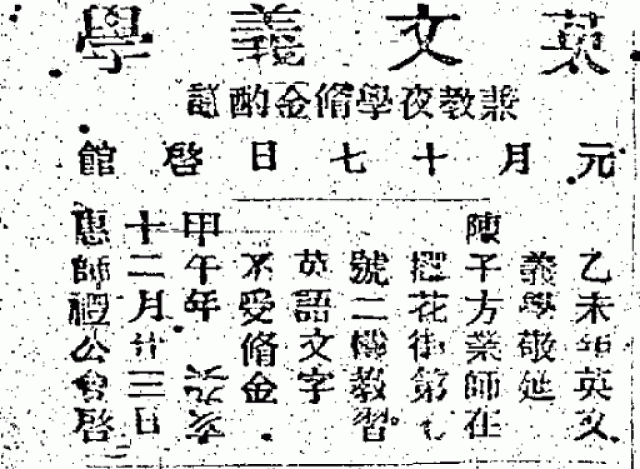 英文義學
兼教夜學脩金酌議
元月十七日啓館
乙未年英文
義學敬延
陳子方業師在
擺花街第
號二樓教習
英語文字
不受脩金
甲午年
十二月廿三日
惠師禮公會啓